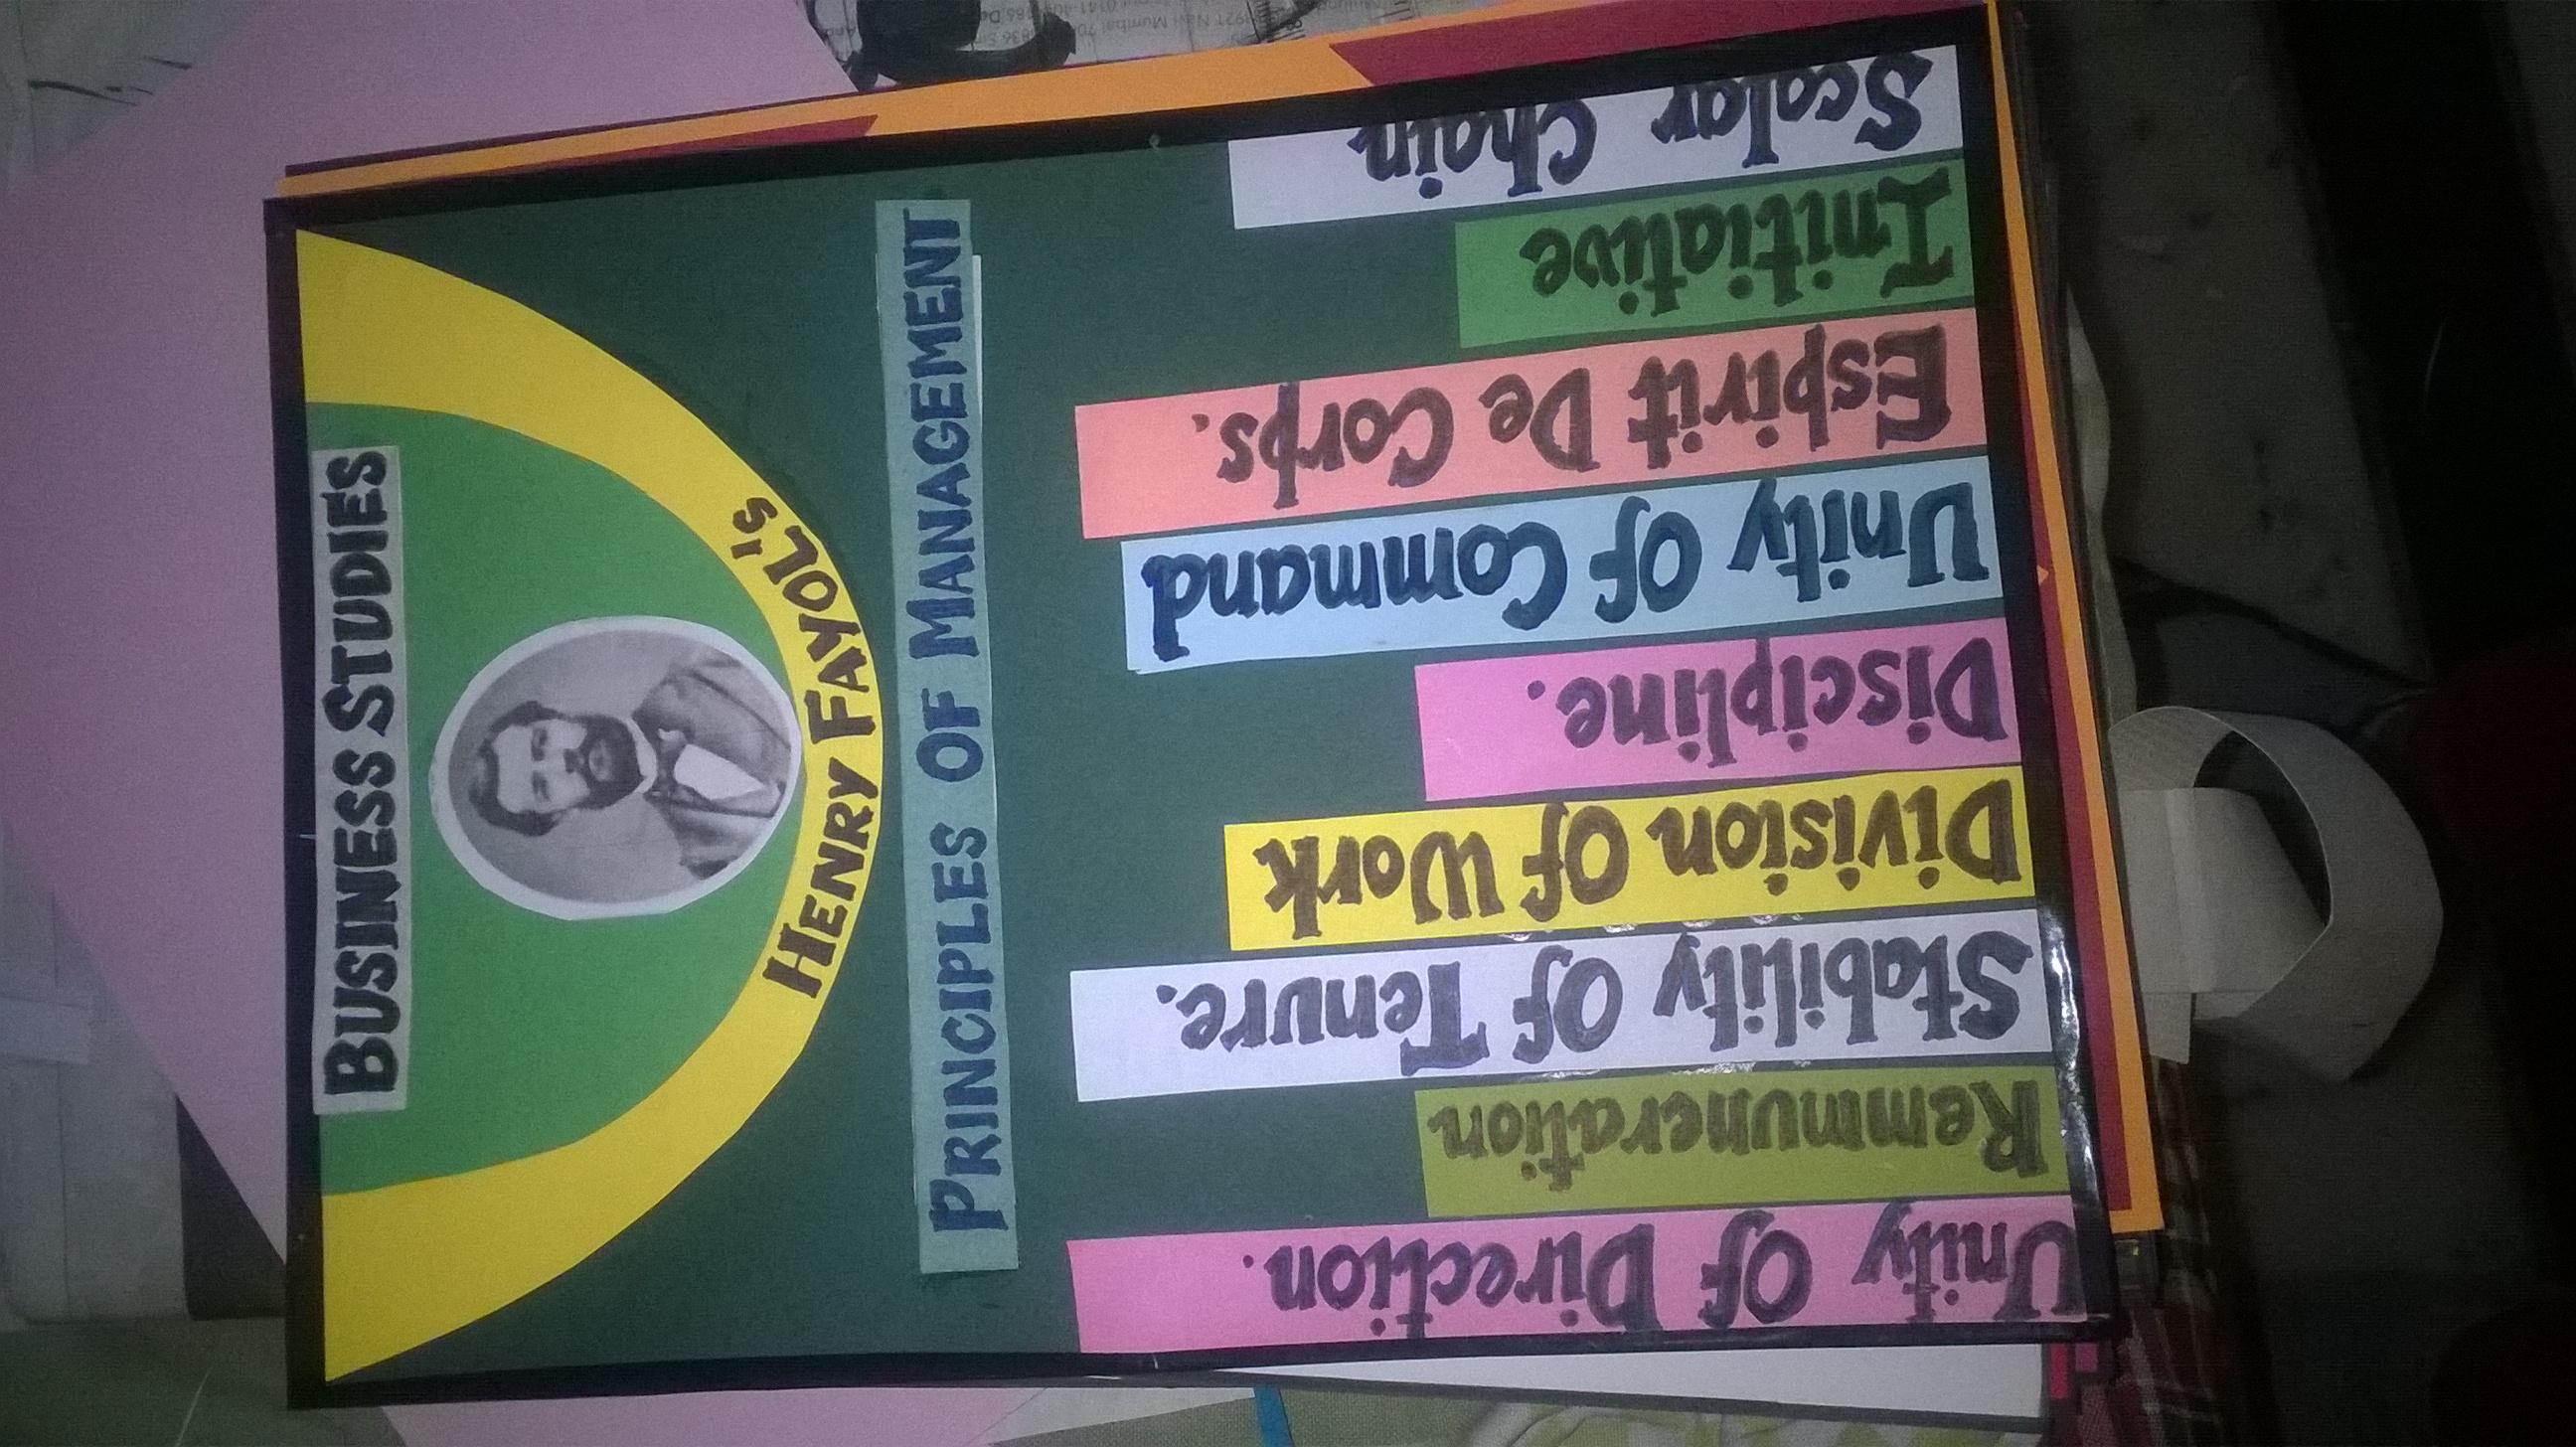 BUSINESS STUDIES
HENRY FAYOL'S
PRINCIPLES OF MANAGEMENT
Unity Of Direction.
Remmuneration
Stability Of Tenure.
Division Of Work
Discipline.
Unity Of Command
Espirit De Corps.
Initiative
Scalar Chain